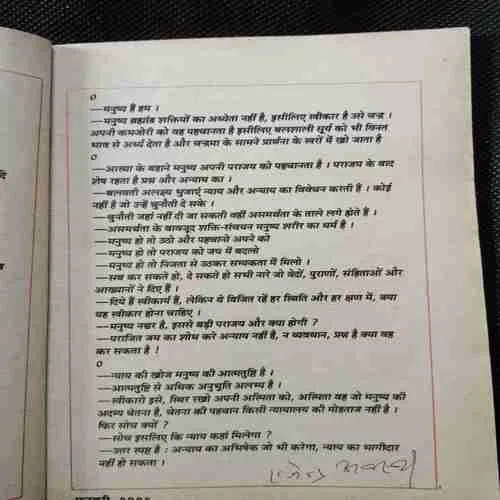 ०
—मनुष्य हैं हम ।
—मनुष्य ब्रह्मांड शक्तियों का अध्येता नहीं है, इसीलिए स्वीकार है उसे चन्द्र ।
अपनी कमजोरी को वह पहचानता है इसीलिए बलशाली सूर्य को भी विनत
भाव से अर्घ्य देता है और चन्द्रमा के सामने प्रार्थना के स्वरों में खो जाता है
०
—आस्था के बहाने मनुष्य अपनी पराजय को पहचानता है । पराजय के बाद
शेष रहता है प्रश्न और अन्याय का ।
—बलवती अलक्ष्य भुजाएँ न्याय और अन्याय का विवेचन करती हैं । कोई
नहीं है जो उन्हें चुनौती दे सके ।
—चुनौती जहां नहीं दी जा सकती वहीं असमर्थता के ताले लगे होते हैं ।
—असमर्थता के बावजूद शक्ति-संचयन मनुष्य शरीर का धर्म है ।
—मनुष्य हो तो उठो और पहचानो अपने को
—मनुष्य हो तो पराजय को जय में बदलो
—मनुष्य हो तो निजता से उठकर समग्रता में मिलो ।
—सब कर सकते हो, दे सकते हो सभी नारे जो वेदों, पुराणों, संहिताओं और
आख्यानों ने दिए हैं ।
—दिये हैं स्वीकार्य हैं, लेकिन वे विजित रहें हर स्थिति और हर क्षण में, क्या
यह स्वीकार होना चाहिए ।
—मनुष्य नश्वर है, इससे बड़ी पराजय और क्या होगी ?
—पराजित जय का शोध करे अन्याय नहीं है, न व्यवधान, प्रश्न है क्या वह
कर सकता है !
०
—न्याय की खोज मनुष्य की आत्मतुष्टि है ।
—आत्मतुष्टि से अधिक अनुभूति अलभ्य है ।
—स्वीकारो इसे, स्थिर रखो अपनी अस्मिता को, अस्मिता वह जो मनुष्य की
अदम्य चेतना है, चेतना की पहचान किसी न्यायालय की मोहताज नहीं है ।
फिर सोच क्यों ?
—सोच इसलिए कि न्याय कहां मिलेगा ?
—उत्तर स्पष्ट है : अन्याय का अभिषेक जो भी करेगा, न्याय का भागीदार
नहीं हो सकता ।
राजेन्द्र अवस्थी